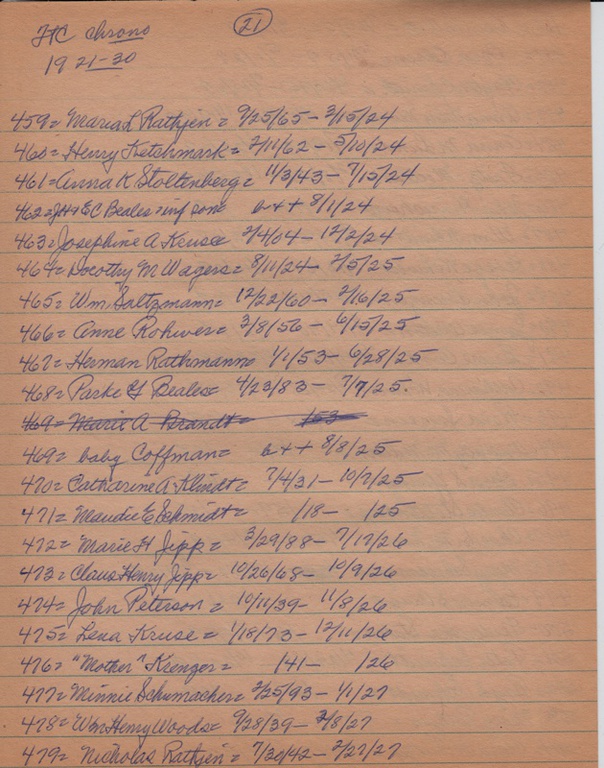 FtC chrono 21
1921-30
459 = Maria L Rathjen = 9/25/65 - 3/15/24
460 = Henry Ketchmark = 2/11/62 - 5/10/24
461 = Anna K Stoltenberg = 11/3/43 - 7/15/24
462 = JH & EC Beales = inf son b++ 8/1/24
463 = Josephine A Kruse 2/4/04 - 12/2/24
464 = Dorothy M Wagers = 8/11/24 - 2/5/25
465 = Wm Saltzmann = 12/22/60 - 2/16/25
466 = Anne Rohwer = 3/8/56 - 6/15/25
467 = Herman Rathmann = 1/1/53 - 6/28/25
468 = Parke G Beales 4/23/83 - 7/7/25.
469 = Marie A Brandt = /53
469 = baby Coffman = b++ 8/8/25
470 = Catharine A Klindt = 7/4/31 - 10/7/25
471 = Maudie E Schmidt = /18 - /25
472 = Marie H Jipp = 3/29/88 - 7/17/26
473 = Claus Henry Jipp = 10/26/68 - 10/9/26
474 = John Peterson = 10/11/39 - 11/8/26
475 = Lena Kruse = 1/18/73 - 12/11/26
476 = "Mother" Krenger = /41 - /26
477 = Minnie Schumacher = 2/25/93 - 1/1/27
478 = Wm Henry Woods = 9/28/39 - 2/8/27
479 = Nicholas Rathjen = 7/30/42 - 2/27/27